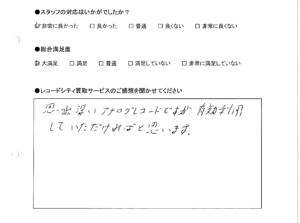 ●スタッフの対応はいかがでしたか？
☑非常に良かった　□ 良かった　□ 普通　□ 良くない　□ 非常に良くない
●総合満足度
☑大満足　□ 満足　□ 普通　□ 満足していない　□ 非常に満足していない
●レコードシティ買取サービスのご感想を聞かせてください
思い出深いアナログレコードですが、有効利用
していただければと思います。